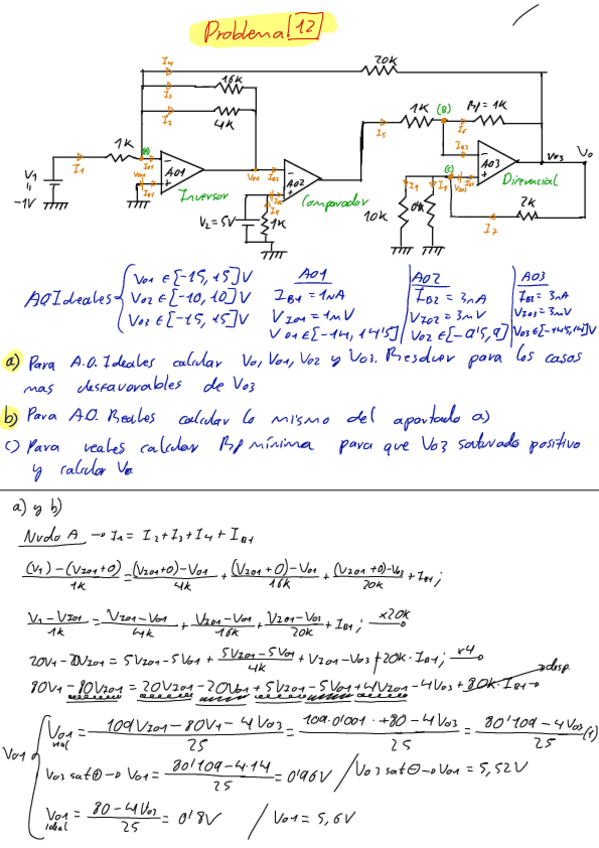 Problema 12
I4
20K
I3
16K
I2
4K
1K
I1
(A)
V1
"
-1V
AO1
Inversor
V01
AO2
Comparador
V2=5V
1K
I5
1K
(B)
Rp=1K
I6
IB3
(C)
AO3
Diferencial
V03
Vo
10K
2K
I7
AO Ideales { V01 ∈ [-15, 15] V
V02 ∈ [-10, 10] V
V03 ∈ [-15, 15] V
AO1
IB1 = 1nA
VIO1 = 1mV
V01 ∈ [-14, 14'5]
AO2
IB2 = 3nA
VIO2 = 3mV
V02 ∈ [-9'5, 9]
AO3
IB3 = 3nA
VIO3 = 3mV
V03 ∈ [-14'5, 14] V
a) Para A.O. Ideales calcular Vo, V01, V02 y V03. Resolver para los casos
mas desfavorables de V03
b) Para AO. Reales calcular lo mismo del apartado a)
c) Para reales calcular Rp mínima para que V03 saturado positivo
y calcular Vo
a) y b)
Nudo A → I1 = I2 + I3 + I4 + IB1
(V1) - (VIO1+0) / 1K = (VIO1+0) - V01 / 4K + (VIO1+0) - V01 / 16K + (VIO1+0) - V03 / 20K + IB1;
V1 - VIO1 / 1K = VIO1 - V01 / 4K + VIO1 - V01 / 16K + VIO1 - V03 / 20K + IB1; x20K →
20V1 - 20VIO1 = 5VIO1 - 5V01 + 5VIO1 - 5V01 / 4K + VIO1 - V03 + 20K · IB1; x4 →
desp.
80V1 - 80VIO1 = 20VIO1 - 20V01 + 5VIO1 - 5V01 + 4VIO1 - 4V03 + 80K · IB1 →
V01 real = 109VIO1 - 80V1 - 4V03 / 25 = 109·0'001 · +80 - 4V03 / 25 = 80'109 - 4V03 / 25 (1)
V01 { V03 sat⊕ → V01 = 80'109 - 4·14 / 25 = 0'96V / V03 sat⊖ → V01 = 5,52V
V01 ideal = 80 - 4V03 / 25 = 0'8V / V01 = 5,6V